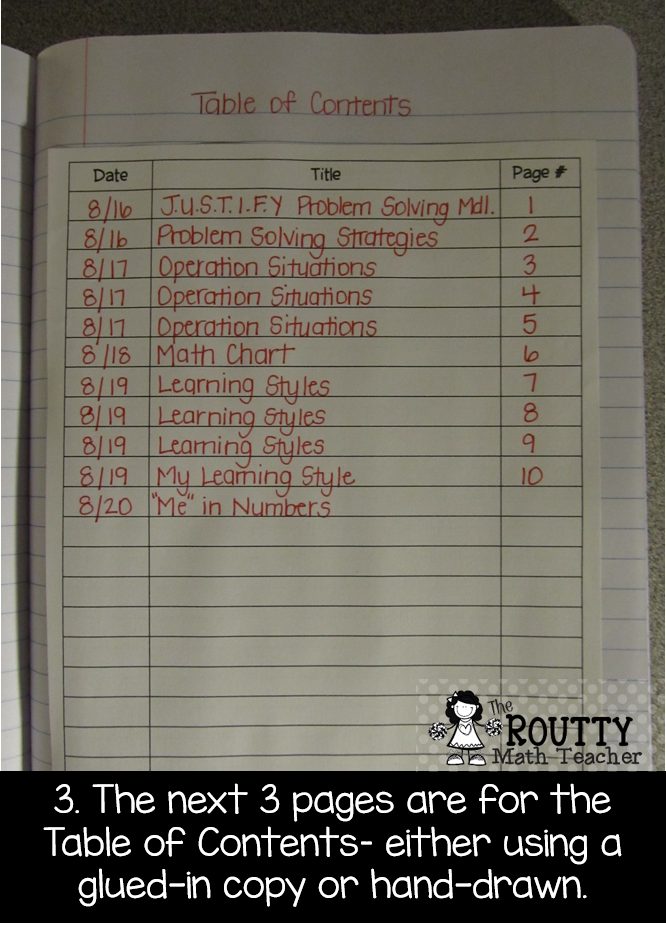 Table of Contents
Date Title Page #
8/16 J.U.S.T.I.F.Y Problem Solving Mdl. 1
8/16 Problem Solving Strategies 2
8/17 Operation Situations 3
8/17 Operation Situations 4
8/17 Operation Situations 5
8/18 Math Chart 6
8/19 Learning Styles 7
8/19 Learning Styles 8
8/19 Learning Styles 9
8/19 My Learning Style 10
8/20 "Me" in Numbers
The
ROUTTY
Math Teacher
3. The next 3 pages are for the
Table of Contents- either using a
glued-in copy or hand-drawn.